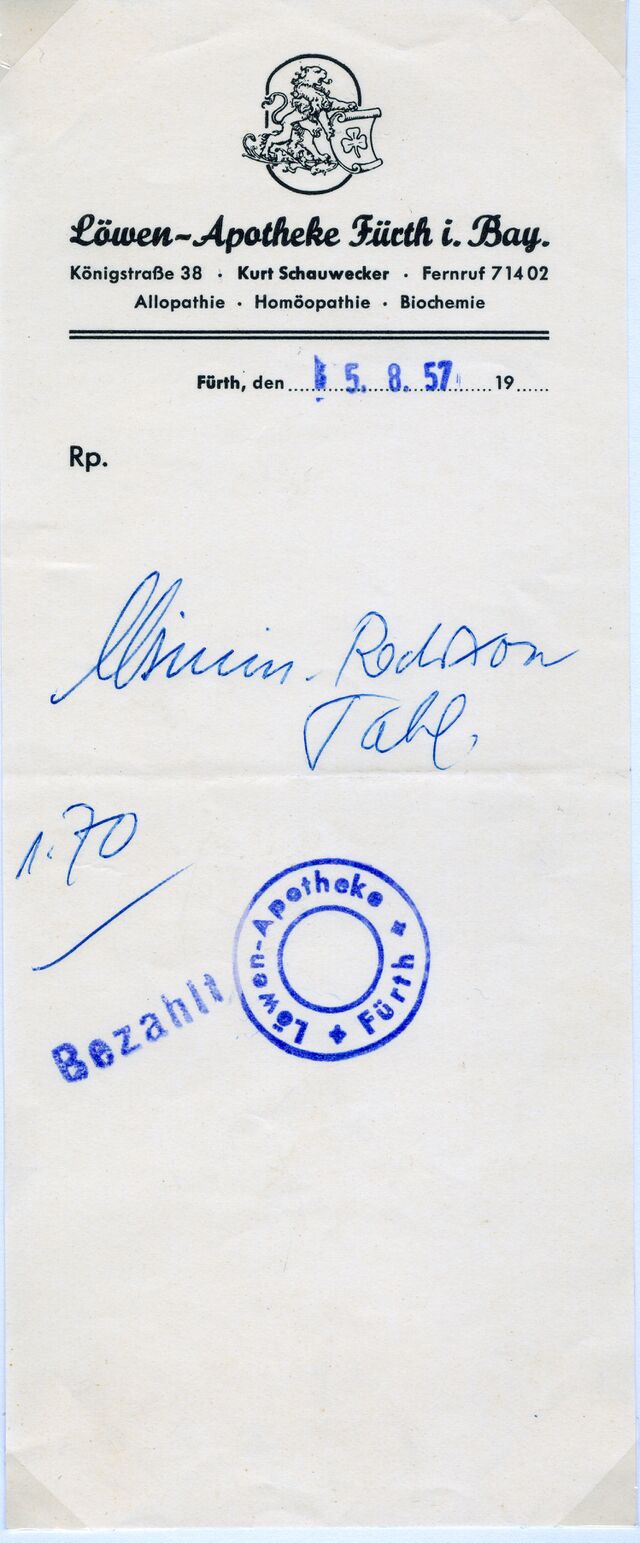 Löwen-Apotheke Fürth i. Bay.
Königstraße 38 · Kurt Schauwecker · Fernruf 71402
Allopathie · Homöopathie · Biochemie
Fürth, den 5. 8. 57 19
Rp.
Tabl.
1.70
Löwen-Apotheke * Fürth *
Bezahlt